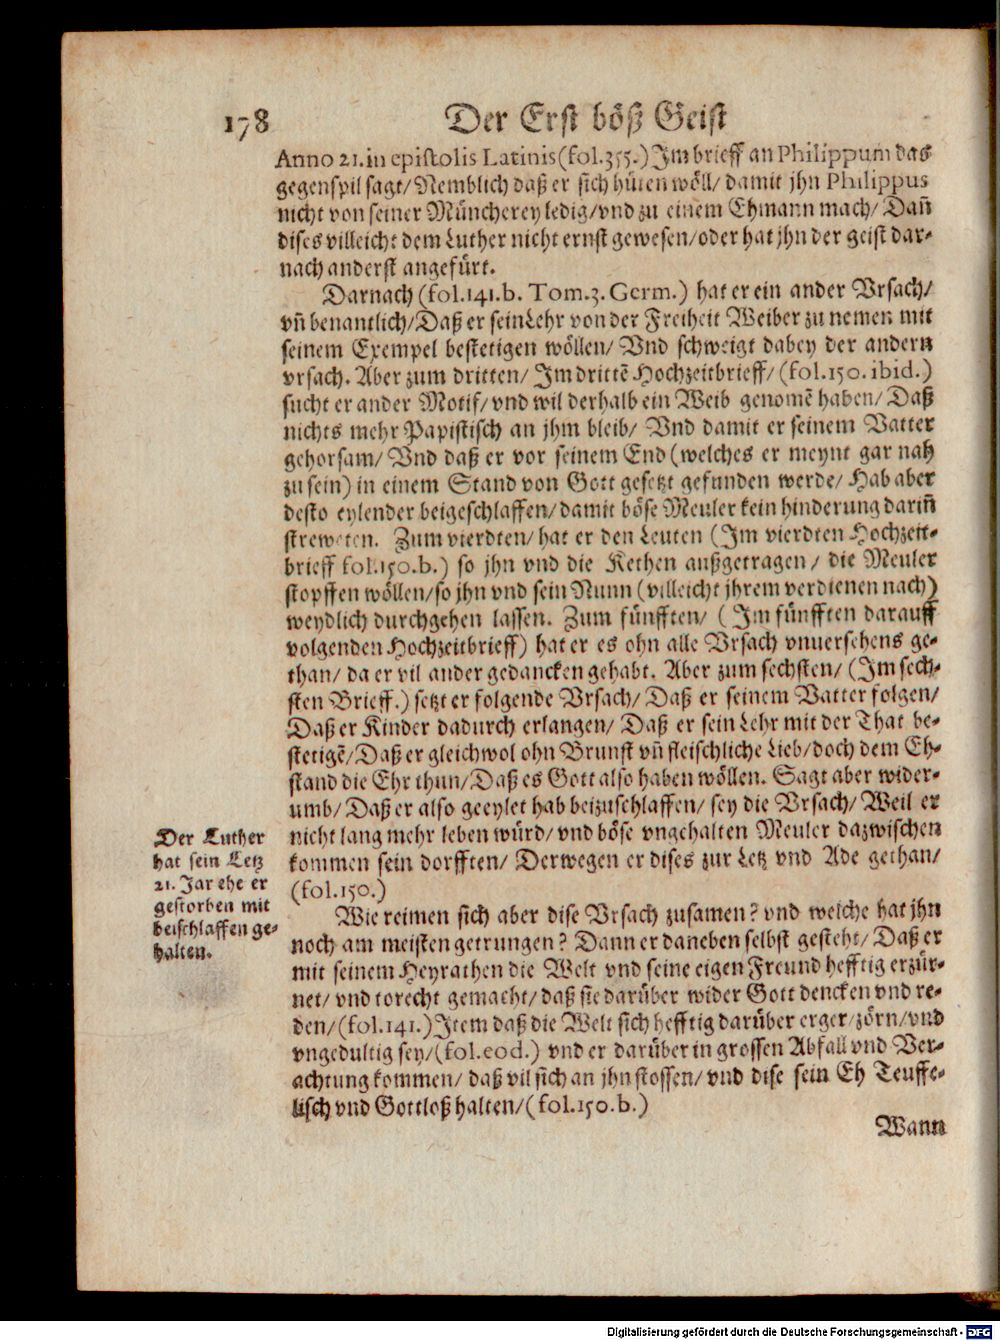 178 Der Erst böß Geist
Anno 21. in epistolis Latinis (fol.355.) Im brieff an Philippum das
gegenspil sagt/ Nemblich daß er sich hüten wöll/ damit jhn Philippus
nicht von seiner Müncherey ledig/ vnd zu einem Ehmann mach/ Dañ
dises villeicht dem Luther nicht ernst gewesen/ oder hat jhn der geist dar-
nach anderst angefürt.
Darnach (fol.141.b. Tom.3. Germ.) hat er ein ander Vrsach/
vñ benantlich/ Daß er sein Lehr von der Freiheit Weiber zu nemen mit
seinem Exempel bestetigen wöllen/ Vnd schweigt dabey der andern
vrsach. Aber zum dritten/ Im drittẽ Hochzeitbrieff/ (fol.150. ibid.)
sucht er ander Motif/ vnd wil derhalb ein Weib genomẽ haben/ Daß
nichts mehr Papistisch an jhm bleib/ Vnd damit er seinem Vatter
gehorsam/ Vnd daß er vor seinem End (welches er meynt gar nah
zu sein) in einem Stand von Gott gesetzt gefunden werde/ Hab aber
desto eylender beigeschlaffen/ damit böse Meuler kein hinderung dariñ
streweten. Zum vierdten/ hat er den Leuten (Im vierdten Hochzeit-
brieff fol.150.b.) so jhn vnd die Kethen außgetragen/ die Meuler
stopffen wöllen/ so jhn vnd sein Nunn (villeicht jhrem verdienen nach)
weydlich durchgehen lassen. Zum fünfften/ (Im fünfften darauff
volgenden Hochzeitbrieff) hat er es ohn alle Vrsach vnuersehens ge-
than/ da er vil ander gedancken gehabt. Aber zum sechsten/ (Im sech-
sten Brieff.) setzt er folgende Vrsach/ Daß er seinem Vatter folgen/
Daß er Kinder dadurch erlangen/ Daß er sein Lehr mit der That be-
stetigẽ/ Daß er gleichwol ohn Brunst vñ fleischliche Lieb/ doch dem Eh-
stand die Ehr thun/ Daß es Gott also haben wöllen. Sagt aber wider-
umb/ Daß er also geeylet hab beizuschlaffen/ sey die Vrsach/ Weil er
nicht lang mehr leben würd/ vnd böse vngehalten Meuler dazwischen
kommen sein dorfften/ Derwegen er dises zur Letz vnd Ade gethan/
(fol.150.)
Der Luther
hat sein Letz
21. Jar ehe er
gestorben mit
beischlaffen ge-
halten.
Wie reimen sich aber dise Vrsach zusamen? vnd welche hat jhn
noch am meisten getrungen? Dann er daneben selbst gesteht/ Daß er
mit seinem Heyrathen die Welt vnd seine eigen Freund hefftig erzür-
net/ vnd torecht gemacht/ daß sie darüber wider Gott dencken vnd re-
den/ (fol.141.) Item daß die Welt sich hefftig darüber erger/ zörn/ vnd
vngedultig sey/ (fol.eod.) vnd er darüber in grossen Abfall vnd Ver-
achtung kommen/ daß vil sich an jhn stossen/ vnd dise sein Eh Teuffe-
lisch vnd Gottloß halten/ (fol.150.b.)
Wann
Digitalisierung gefördert durch die Deutsche Forschungsgemeinschaft - DFG